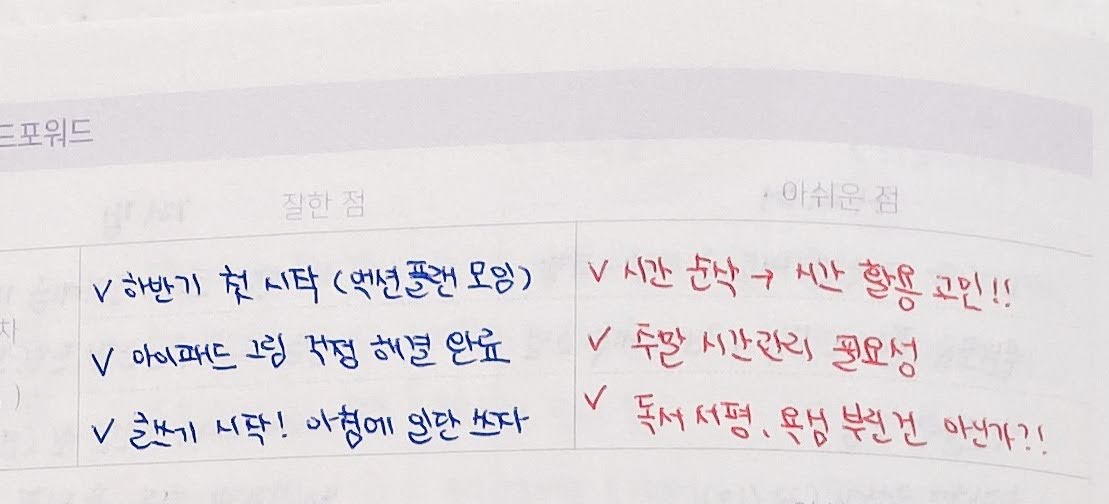 드포워드
잘한 점
아쉬운 점
✓ 하반기 첫 시작 (액션플랜 모임)
✓ 시간 순삭 → 시간 활용 고민!!
차
✓ 아이패드 그림 걱정 해결 완료
✓ 주말 시간관리 필요성
)
✓ 글쓰기 시작! 아침에 일단 쓰자
✓ 독서 서평, 욕심 부린 건 아닌가?!